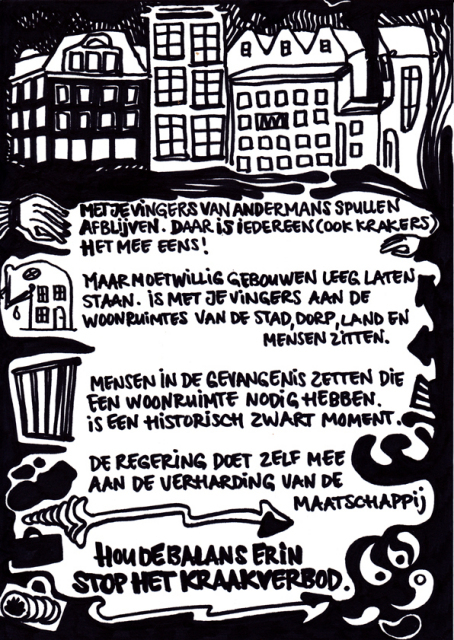 MET JE VINGERS VAN ANDERMANS SPULLEN
AFBLIJVEN. DAAR IS IEDEREEN (OOK KRAKERS)
HET MEE EENS!
MAAR MOETWILLIG GEBOUWEN LEEG LATEN
STAAN. IS MET JE VINGERS AAN DE
WOONRUIMTES VAN DE STAD, DORP, LAND EN
MENSEN ZITTEN.
MENSEN IN DE GEVANGENIS ZETTEN DIE
EEN WOONRUIMTE NODIG HEBBEN.
IS EEN HISTORISCH ZWART MOMENT.
DE REGERING DOET ZELF MEE
AAN DE VERHARDING VAN DE
MAATSCHAPPIJ
HOU DE BALANS ERIN
STOP HET KRAAKVERBOD.